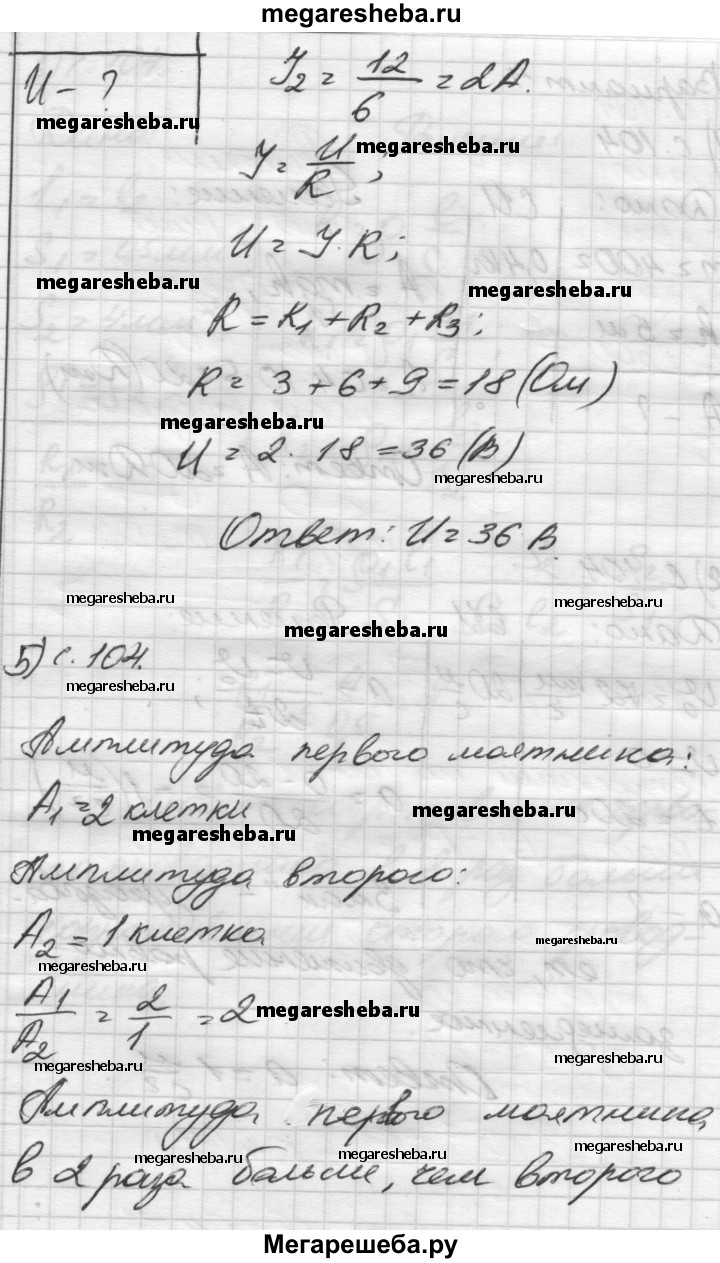 megaresheba.ru
U - ?
J₂ = 12/6 = 2А.
megaresheba.ru
J = U/R;
megaresheba.ru
U = J·R;
megaresheba.ru
megaresheba.ru
R = R₁ + R₂ + R₃;
R = 3 + 6 + 9 = 18 (Ом)
megaresheba.ru
U = 2 · 18 = 36 (В)
megaresheba.ru
Ответ: U = 36 В.
megaresheba.ru
megaresheba.ru
megaresheba.ru
5) с. 104.
megaresheba.ru
Амплитуда первого маятника:
A₁ = 2 клетки
megaresheba.ru
megaresheba.ru
Амплитуда второго:
A₂ = 1 клетка
megaresheba.ru
megaresheba.ru
A₁/A₂ = 2/1 = 2
megaresheba.ru
megaresheba.ru
megaresheba.ru
Амплитуда первого маятника
megaresheba.ru
megaresheba.ru
megaresheba.ru
в 2 раза больше, чем второго
Мегарешеба.ру